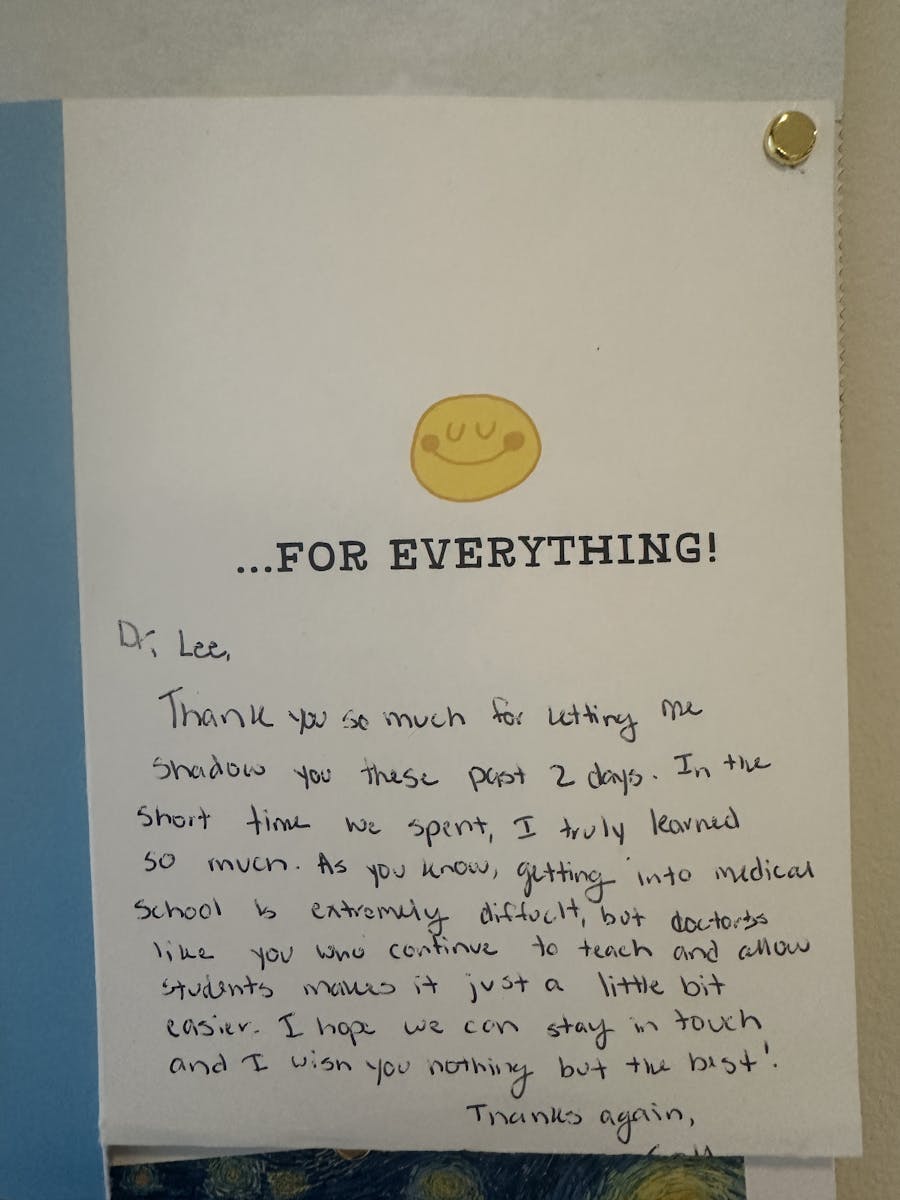 ...FOR EVERYTHING!
Dr, Lee,
Thank you so much for letting me
shadow you these past 2 days. In the
short time we spent, I truly learned
so much. As you know, getting into medical
school is extremely difficult, but doctors
like you who continue to teach and allow
students makes it just a little bit
easier. I hope we can stay in touch
and I wish you nothing but the best!
Thanks again,